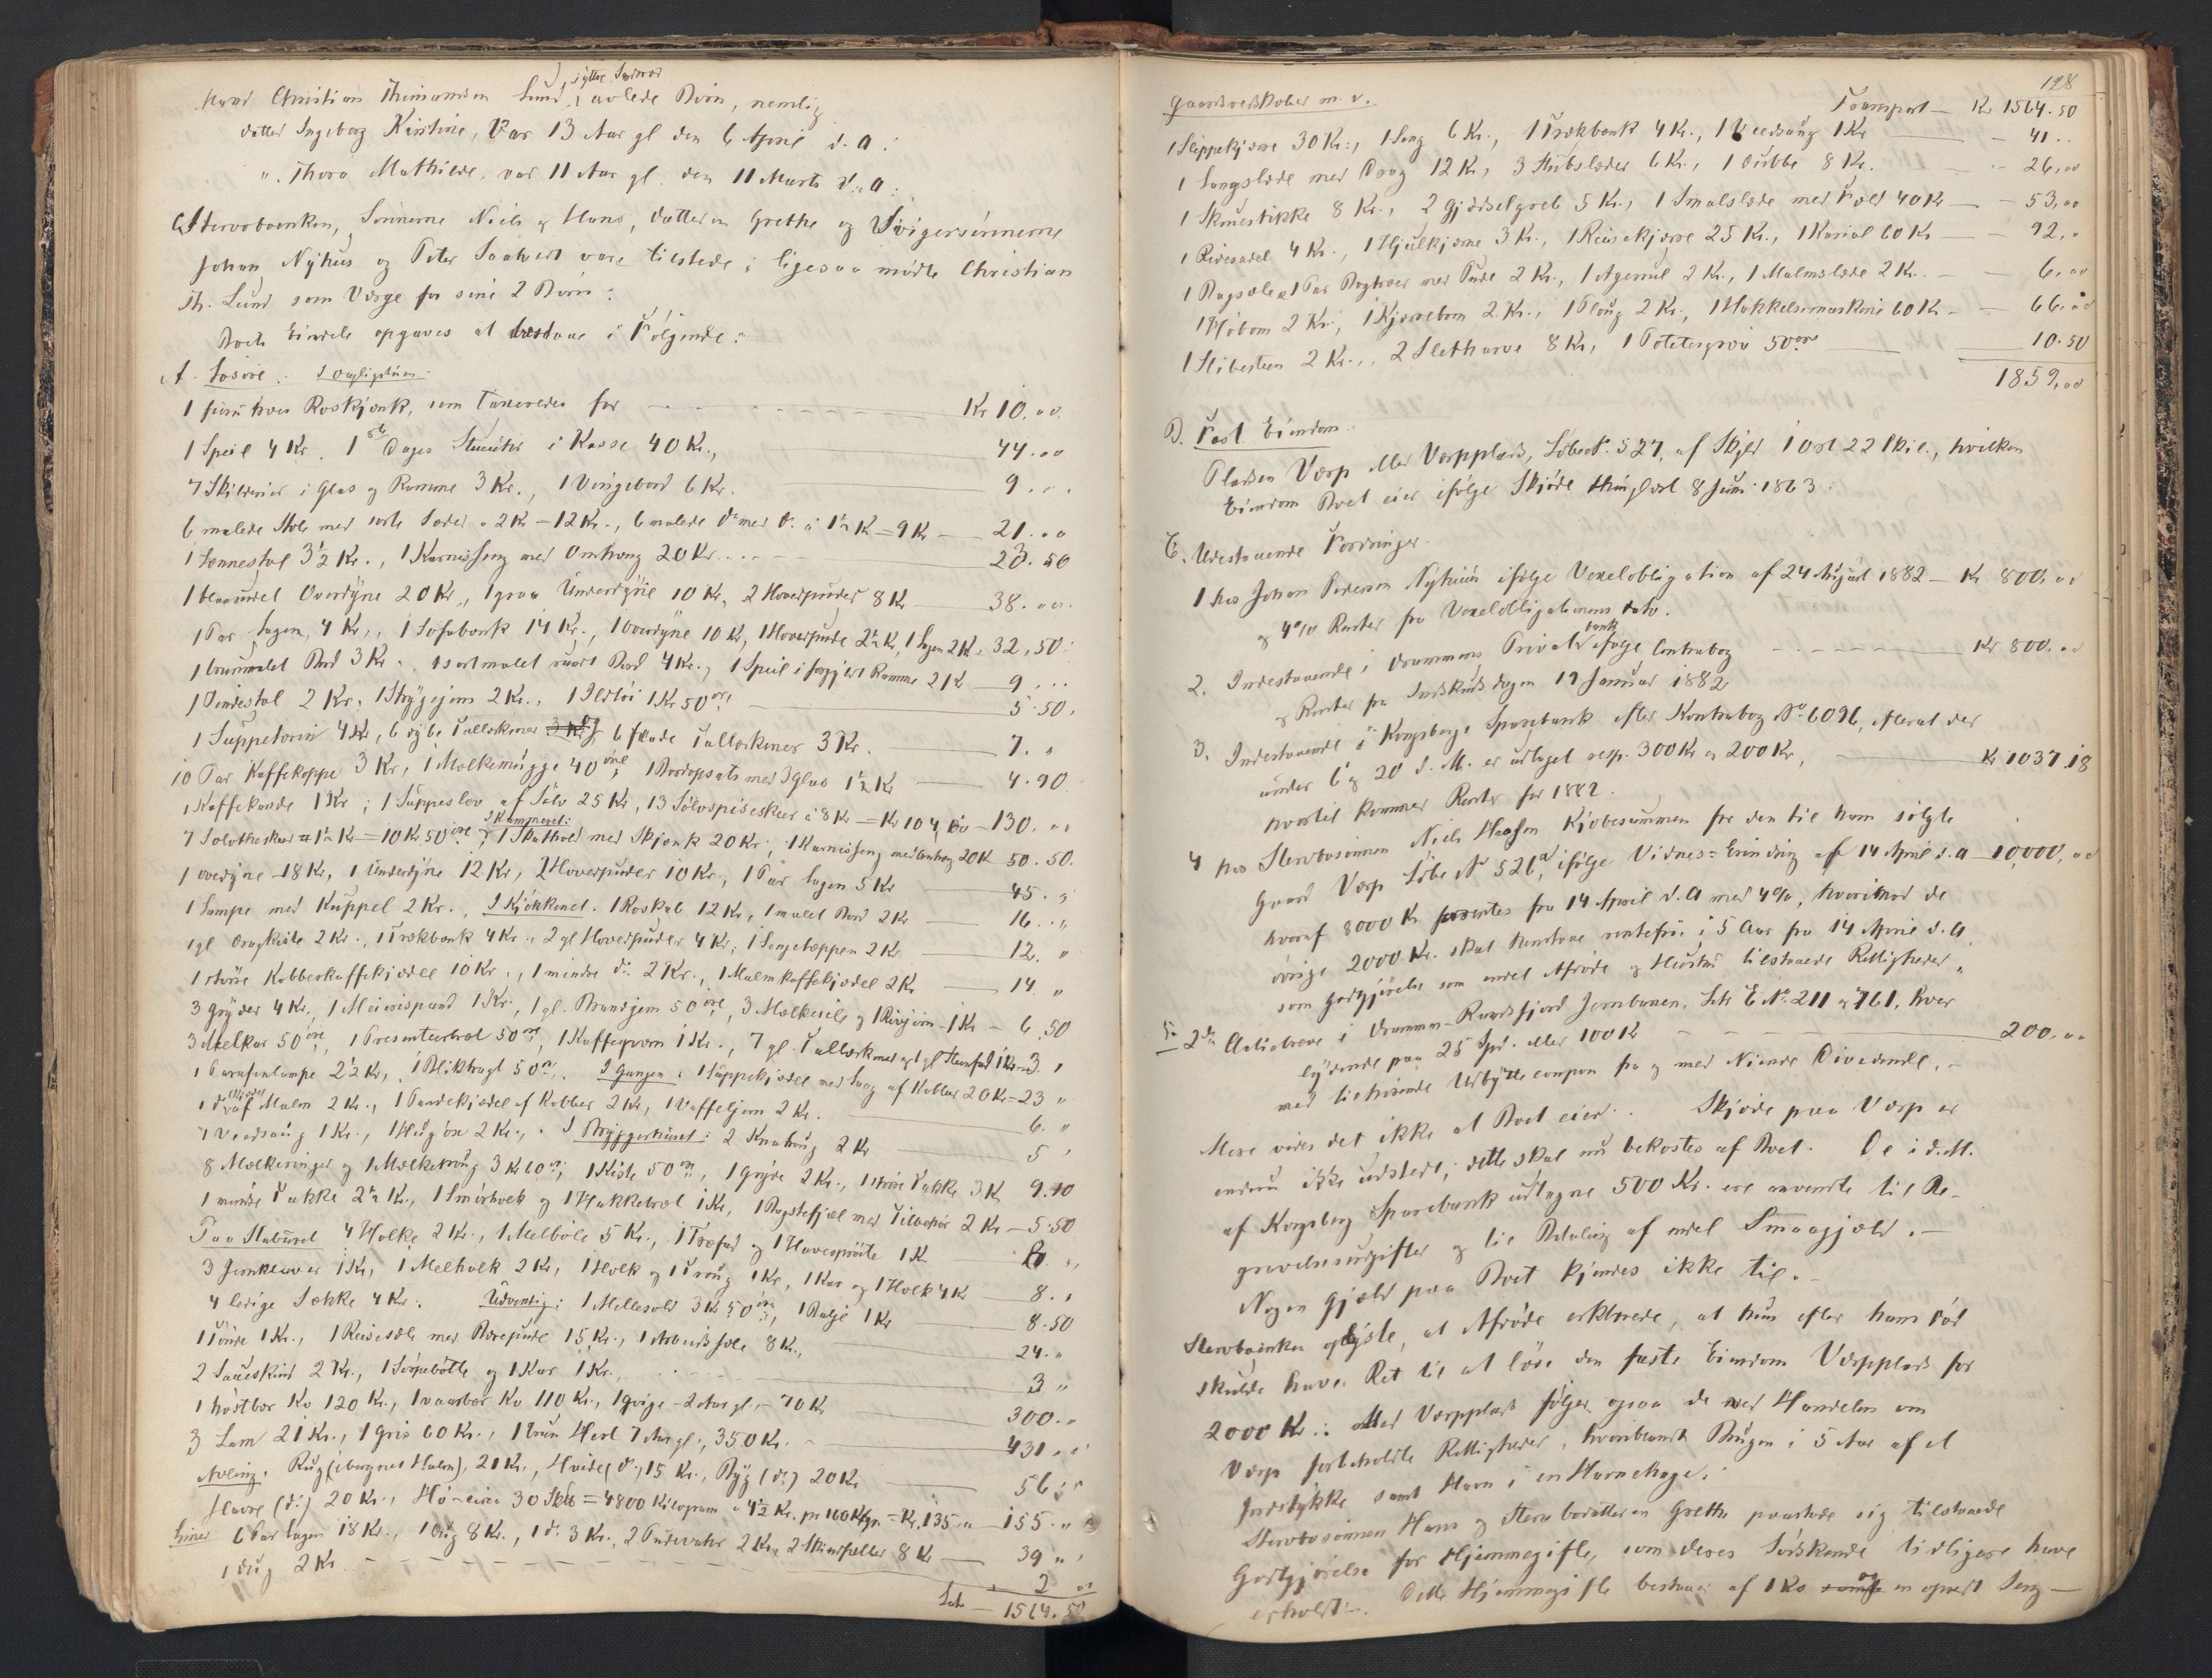 Mand Christian Thimansen Lund, i ægte Senge avlede Børn, nemlig
datter Ingeborg Kirstine, var 13 Aar gl den 6 April d. A.
". Thora Mathilde, var 11 Aar gl. den 11 Marts d. A.
Stervboenken, Sønnerne Niels og Hans, datteren Grethe og Svigersønnerne
Johan Nyhus og Peter vare tilstede; ligesaa mødte Christian
Th. Lund som Værge for sine 2 Børn:
Boets Eiendele opgaves at bestaae i Følgende:
A. Løsøre. I Dagligstuen
1 Roskjænk, som taxeredes for Kr 10.00
1 Speil 4 Kr. 1 8te Dages Stueuhr i Kasse 40 Kr., 44.00
7 Skilderier i Glas og Ramme 3 Kr., 1 Vingebord 6 Kr. 9.
6 malede Stole med sorte Sæder a 2 Kr - 12 Kr., 6 malede do med do. à 1½ Kr = 9 Kr 21.00
1 Lænnestol 3½ Kr., 1 Karnisseng med Omhæng 20 Kr. 23.50
1 Overdyne 20 Kr., 1 graa Underdyne 10 Kr., 2 Hovedpuder 8 Kr 38.00
1 Par Lagen, 4 Kr., 1 Sofabænk 14 Kr., 1 overdyne 10 Kr, 1 Hovedpude 2½ Kr, 1 Lagen 2 Kr. 32,50
1 brunmalet Bord 3 Kr., 1 sortmalet rundt Bord 4 Kr., 1 Speil i forgyldt Ramme 2 Kr 9
1 Pindestol 2 Kr., 1 Strygejern 2 Kr., 1 Ildtøi 1 Kr 50 øre 5.50
1 Suppeterin 4 Kr, 6 dybe Tallerkener og 6 flade Tallerkener 3 Kr. 7. "
10 Par Kaffekoppe 3 Kr, 1 Mælkemugge 40 øre, 1 Bordopsats med 3 glas 1½ Kr 4.90
1 Kaffekande 1 Kr; 1 Suppeslev af Sølv 25 Kr, 13 Sølvspiseskeer à 8 Kr = Kr 104,00 130.
7 Sølvtheskeer a 1½ Kr = 10 Kr 50 øre. I Kammeret: 1 Skathol med Skjænk 20 Kr., 1 Karnisseng med Omhæng 20 Kr 50.50.
1 overdyne 18 Kr, 1 Underdyne 12 Kr, 2 Hovedpuder 10 Kr., 1 Par Lagen 5 Kr 45. "
1 Lampe med Kuppel 2 Kr. I Kjøkkenet. 1 Roskab 12 Kr, 1 malet Bord 2 Kr 16. "
1 gl Dragkiste 2 Kr., 1 Trækbænk 4 Kr., 2 gl Hovedpuder 4 Kr; 1 Sengetæppen 2 Kr 12. "
1 større Kobberkaffekjedel 10 Kr., 1 mindre do 2 Kr., 1 Malmkaffekjedel 2 Kr 14 "
3 Gryder 4 Kr., 1 Kr, 1 gl. Brændjern 50 øre, 3 Mælkesile og 1 Rivjern 1 Kr 6.50
3 Melkar 50 øre, 1 Presenteerbræt 50 øre, 1 Kaffeqværn 1 Kr., 7 gl. Tallerkener og 1 gl Steenfad 1 Kr 3.
1 Parafinlampe 2½ Kr, 1 Bliktragt 50 øre. I Gangen: 1 Suppekjedel med Laag af Kobber 20 Kr 23 "
1 af Malm 2 Kr., 1 Pandekjedel af Kobber 2 Kr, 1 Vaffeljern 2 Kr. 6. "
1 Veedsaug 1 Kr., 1 Hugøx 2 Kr.,. I Bryggerhuset: 2 Knatraug 2 Kr 5
8 Mælkeringer og 1 Mælketraug 3 Kr 60 øre; 1 Kiste 50 øre, 1 gryde 2 Kr., 1 større Takke 3 Kr 9.10
1 mindre Takke 2½ Kr., 1 Smørholk og 1 Hakkebræt 1 Kr., 1 Bagstefjæl med Tilbehør 2 Kr 5.50
Paa Staburet 4 Holke 2 Kr., 1 Melbøle 5 Kr., 1 Træfad og 1 Havesprøite 1 Kr 8.
3 Jernstænger 1 Kr, 1 Melholk 2 Kr, 1 Holk og 1 Traug 1 Kr, 1 Kar og 1 Holk 4 Kr 8.
4 ledige Sække 4 Kr. Udvendig: 1 Mellesold 3 Kr 50 øre, 1 Balje 1 Kr 8.50
1 Tønde 1 Kr., 1 Reisesæle med Bærepude 15 Kr., 1 Arbeidssæle 8 Kr., 24. "
2 Saueskind 2 Kr., 1 Sopebøtte og 1 Kar 1 Kr. 3 "
1 høstbær Ko 120 Kr., 1 vaarbær Ko 110 Kr., 1 qvige 2 Aar gl. 70 Kr 300.
3 Lam 21 Kr., 1 Gris 60 Kr., 1 brun Hest 7 Aar gl., 350 Kr. 431
Avling. Rug (iberegnet Halm), 21 Kr., Hvede (do) 15 Kr., Byg (do) 20 Kr 56
Havre (do) 20 Kr., Hø circa 30 Sk℔ = 4800 Kilogram a 4½ Kr. pr 160 Klgr. = Kr. 135 155. "
Linned 6 Par Lagen 18 Kr., 1 Dug 8 Kr., 1 do 3 Kr., 2 Pudevahr 2 Kr., 2 Skindfælder 8 Kr 39 "
1 Dug 2 Kr 2
Lats 1564.50
128
Gaardsredskaber m. v. Transport Kr 1564.50
1 Slippekjærre 30 Kr., 1 Saug 6 Kr., 1 Trækbænk 4 Kr., 1 Veedsaug 1 Kr 41
1 Langslæde med Drag 12 Kr, 3 Stubslæder 6 Kr., 1 Dubbe 8 Kr. 26,00
1 Skruestikke 8 Kr., 2 Gjødselgreb 5 Kr., 1 Smalslæde med Fæld 40 Kr 53,00
1 Ridesadel 4 Kr., 1 Hjulkjærre 3 Kr., 1 Reisekjærre 25 Kr., 1 Kariol 60 Kr 92,
1 Par med Pude 2 Kr., 1 2 Kr., 1 Malmslæde 2 Kr. 6,00
1 Høbom 2 Kr., 1 Kjærrebom 2 Kr., 1 Ploug 2 Kr., 1 Hakkelsemaskine 60 Kr 66,00
1 Slibesteen 2 Kr., 2 Sletharve 8 Kr, 1 Potetesgrev 50 øre 10.50
1859,00
B. Fast Eiendom.
Pladsen Værp eller Værpplads, Løbe No. 527, af Skyld 1 Ort 22 Skil., hvilken
Eiendom Boet eier ifølge Skjøde thinglæst 8 Juni 1863.
C. Udestaaende Fordringer.
1 hos Johan Pedersen Nyhuus ifølge Vexelobligation af 24 August 1882 Kr 800.00
og 4% Renter fra Vexelobligationens dato.
2. Indestaaende i Drammens Privatbank ifølge Contrabog Kr 800.00
og Renter fra Indskudsdagen 19 Januar 1882
3. Indestaaende i Kongsbergs Sparebank efter Kontrabog No. 6096, efterat der
under 6 og 20 d. M. er udtaget resp. 300 Kr og 200 Kr, Kr 1037.18
hvortil kommer Renter for 1882.
4 hos Stervbosønnen Niels Kjøbesummen for den til ham solgte
Gaard Værp Løbe No 526a, ifølge Vidnes-Erindring af 14 April d. A 10,000,00
hvoraf 8000 Kr forrentes fra 14 April d. A med 4%, hvorimod de
øvrige 2000 Kr. skal henstaae rentefri i 5 Aar fra 14 April d. A.
som godtgjørelse som endel Afdøde og Hustru tilstaaede Rettigheder "
5. 2de Actiebreve i Drammen-Randsfjord Jernbanen, Litr E No. 211 og 761, hver
lydende paa 25 Spd. eller 100 Kr 200.00
med tilhørende Udbyttecoupon fra og med Niende Dividende. —
Mere vides det ikke at Boet eier. Skjøde paa Værp er
endnu ikke udstedt; dette skal nu bekostes af Boet. De i d. M.
af Kongsberg Sparebank udtagne 500 Kr. ere anvendte til Be-
gravelsesudgifter og til Betaling af endel Smaagjæld. —
Nogen Gjæld paa Boet kjendes ikke til. —
Stervboenken oplyste, at Afdøde erklærede, at hun efter hans Død
skulde have Ret til at løse den faste Eiendom Værpplads for
2000 Kr.: Med Værpplads følger ogsaa de ved Handelen om
Værp forbeholdte Rettigheder, hvoriblandt Brugen i 5 Aar af et
Jordstykke samt Havn i en Havnehage.
Stervbosønnen Hans og Stervbodatteren Grethe paastode sig tilstaaede
Godtgjørelse for Hjemmegifte, som deres Sødskende tidligere have
erholdt. Dette Hjemmegifte bestaaer af 1 Ko og en opredt Seng —